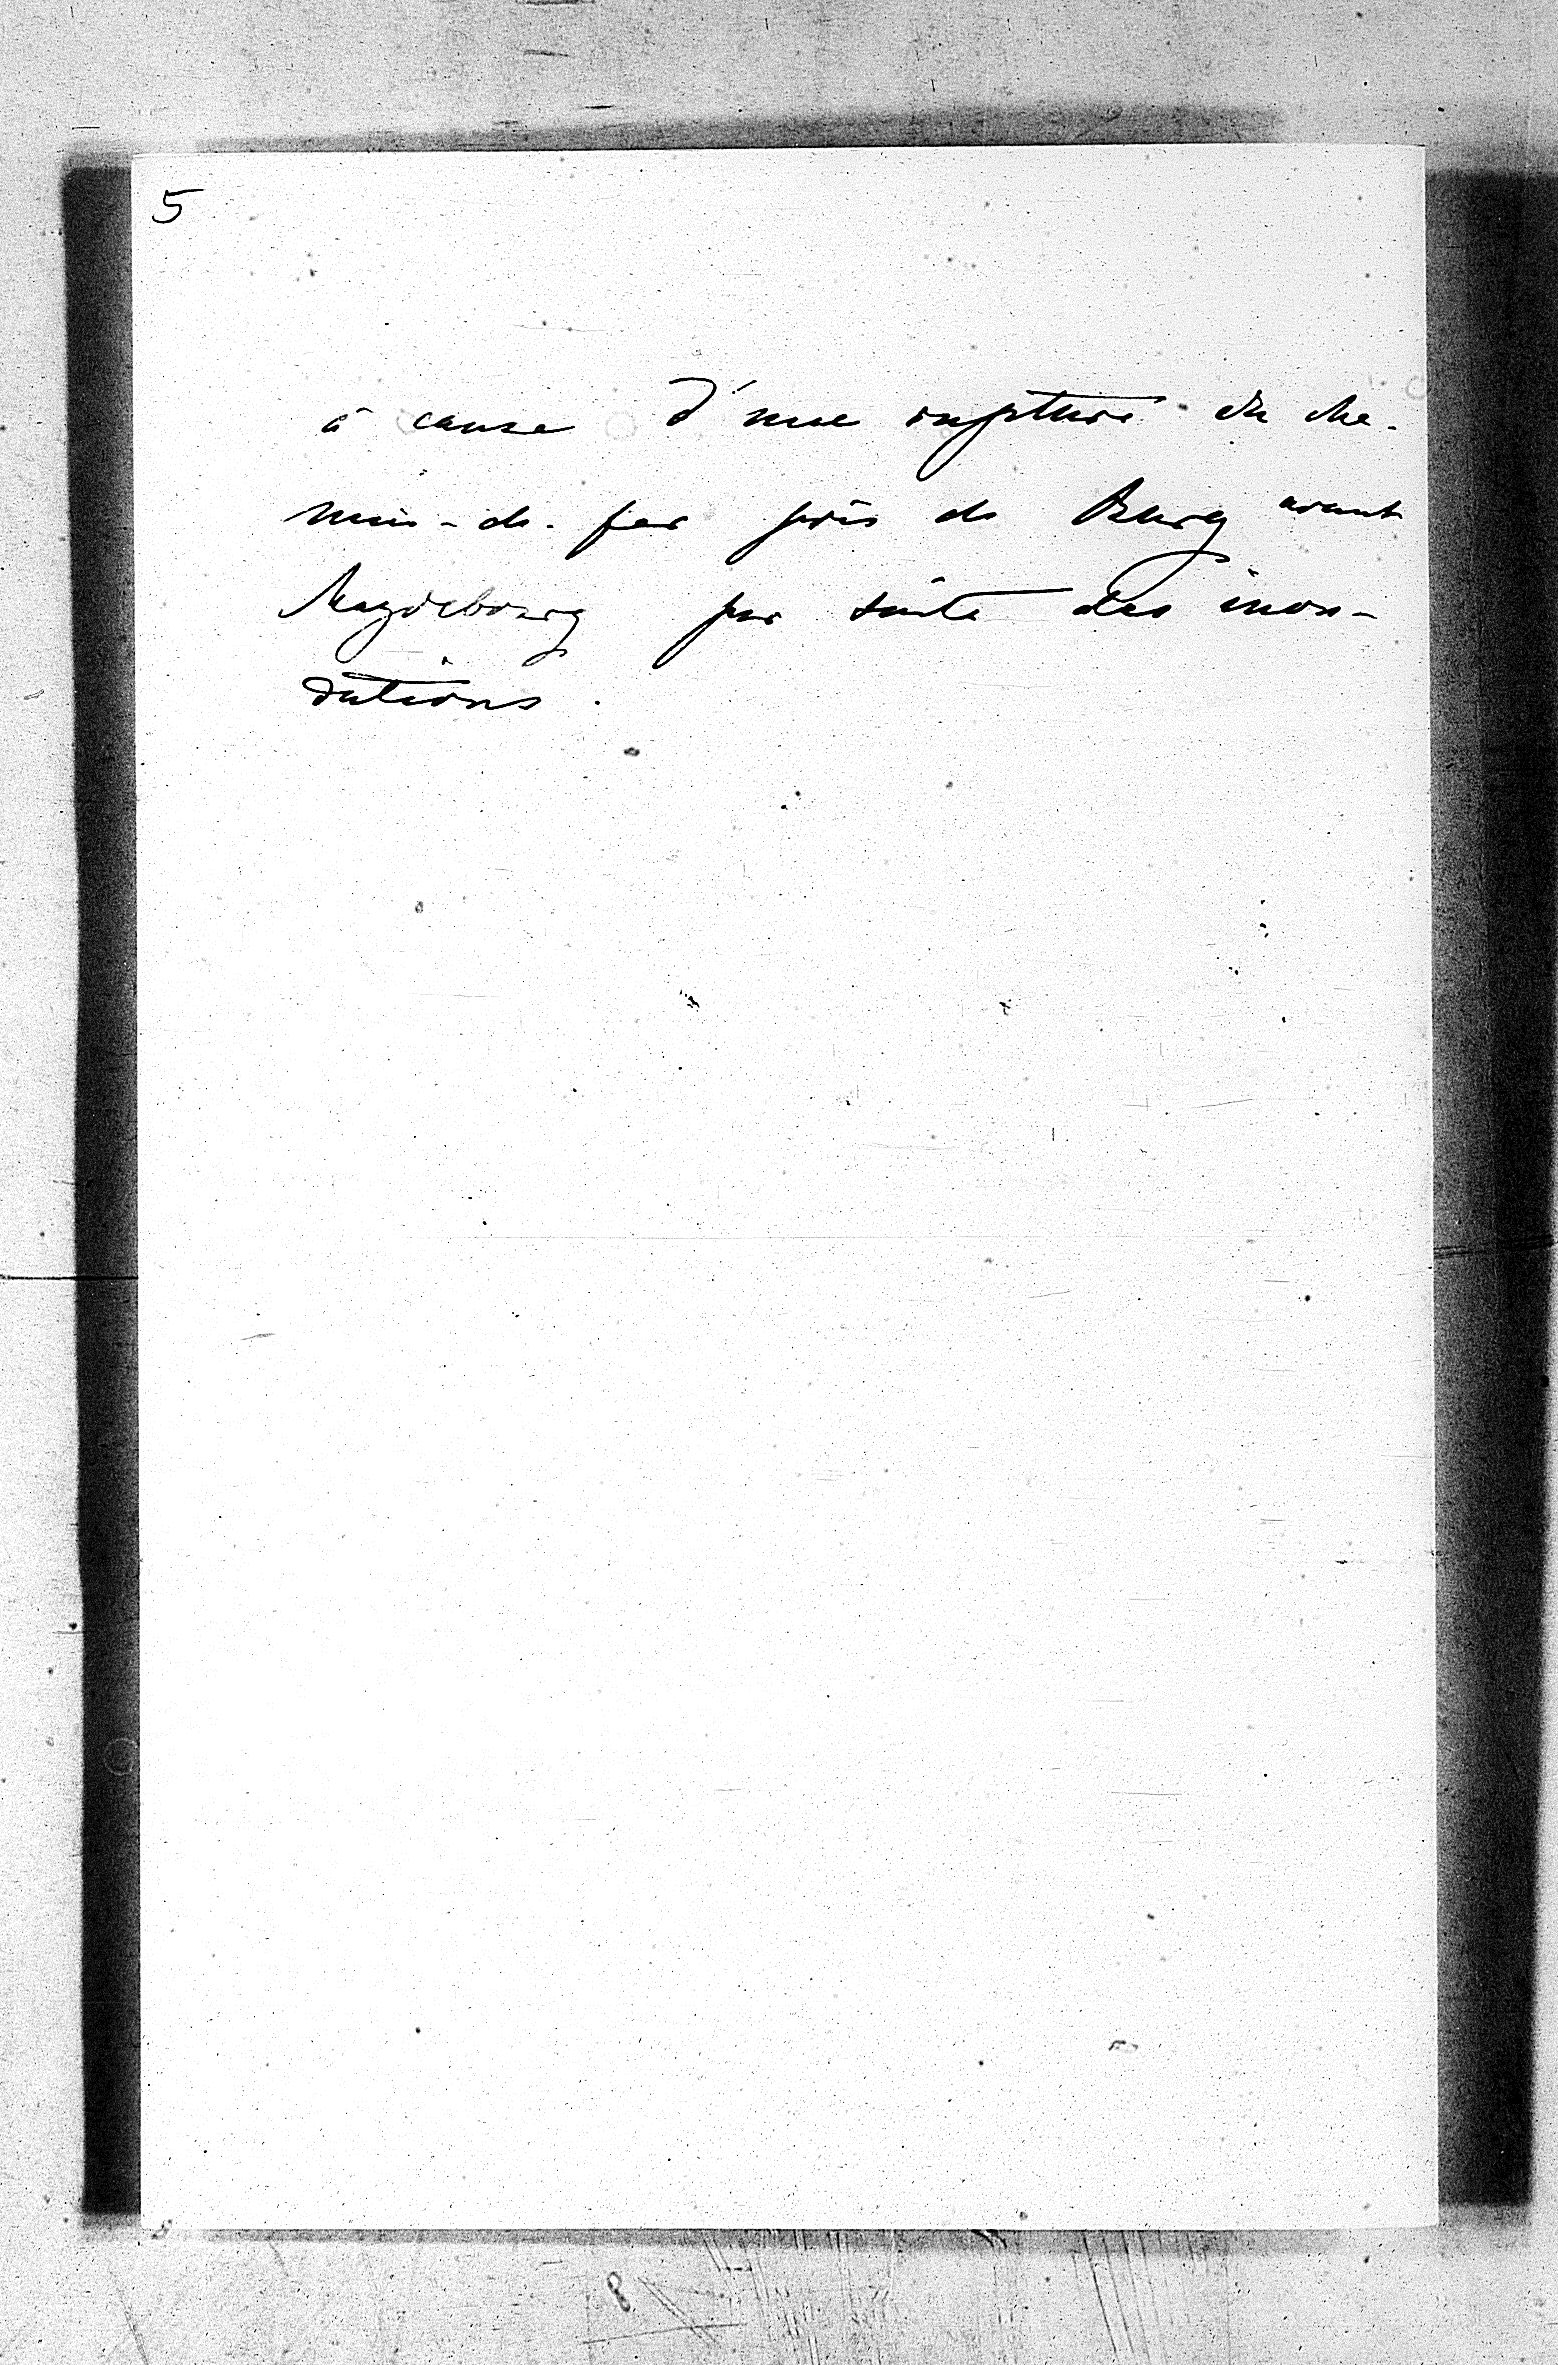 5
à cause d'une rupture du che-
min-de-fer près de Burg avant
Magdebourg par suite des inon-
dations.